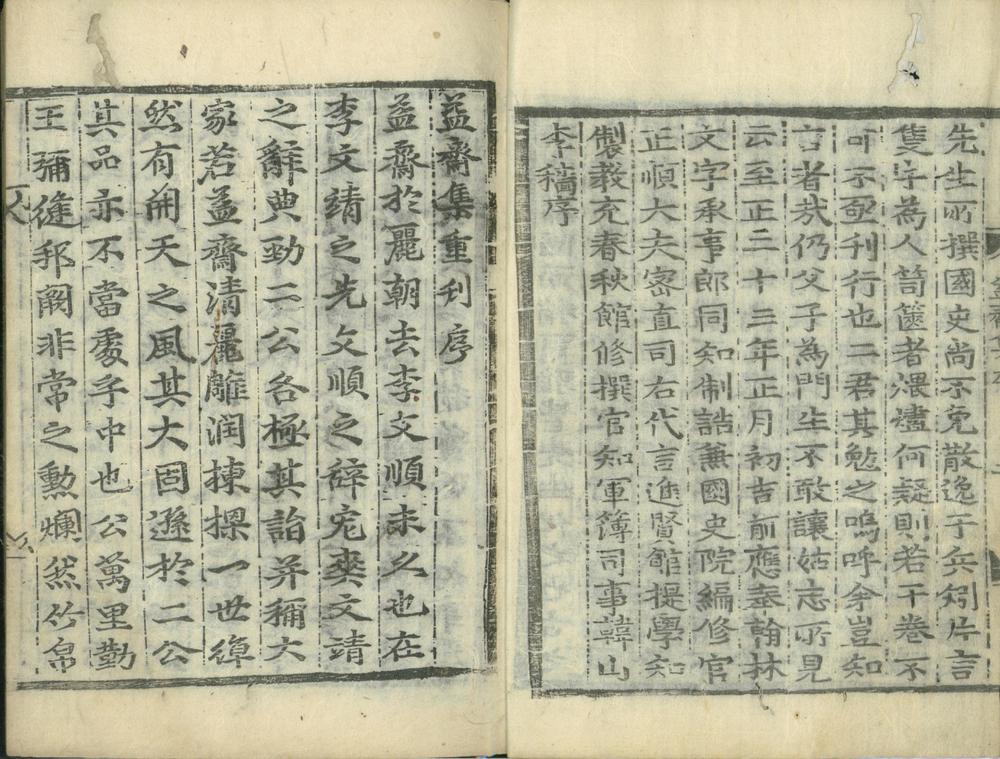 先生所撰國史尚不免散逸于兵矧片言
隻字為人笥篋者煨燼何疑則若干卷不
可不亟刊行也二君其勉之嗚呼余豈知
言者哉仍父子為門生不敢讓姑志所見
云至正二十三年正月初吉前應奉翰林
文字承事郎同知制誥兼國史院編修官
正順大夫密直司右代言進賢館提學知
製教充春秋館修撰官知軍簿司事韓山
李穡序
益齋集重刋序
益齋於麗朝去李文順未久也在
李文靖之先文順之辭宏奕文靖
之辭典勁二公各極其詣并稱大
家若益齋清麗雕润揀擇一世綽
然有開天之風其大固遜於二公
其品亦不當處乎中也公萬里勤
王彌縫邦闕非常之勲爛然竹帛